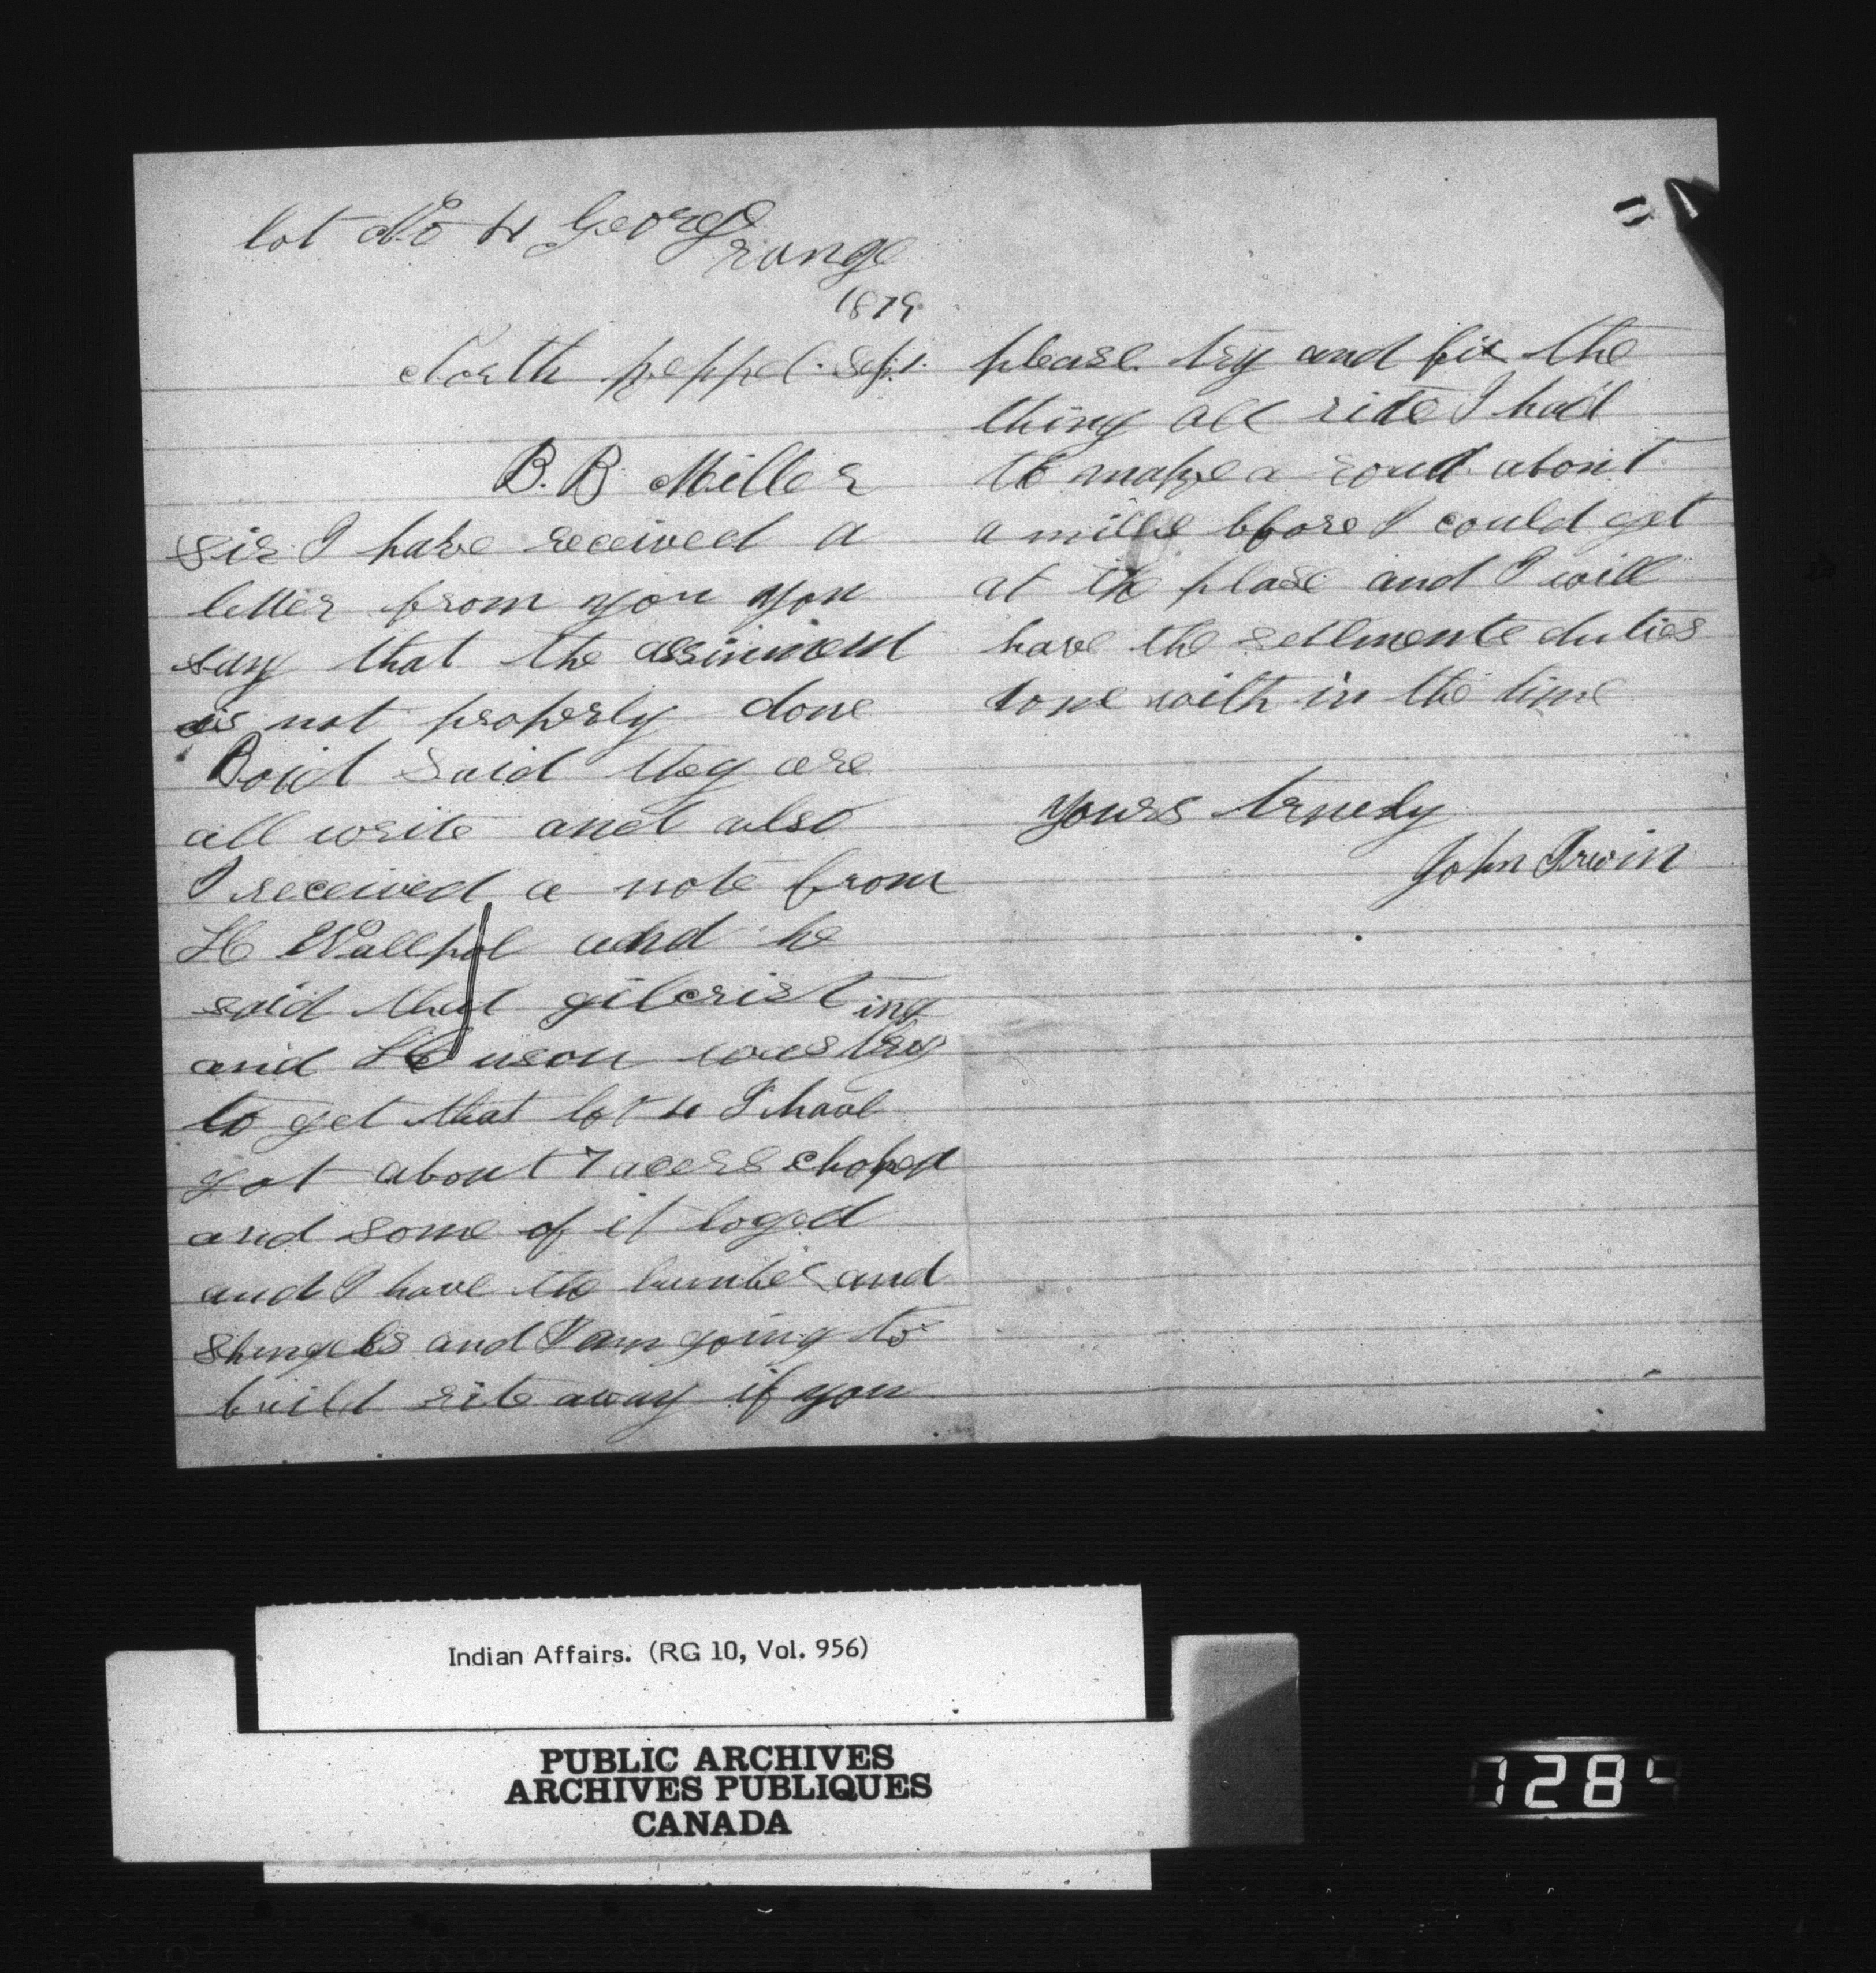 lot No 4 George
range
1879
North peppel. Sept.
B. B Miller
sir I have received a
letter from you you
say that the
is not properly done
Boid said they are
all write and also
I received a note from
H Wallpol and he
said that gilcrist
and was trying
to get that lot 4 I have
got about 7 acers choped
and some of it loged
and I have the lumber and
shingels and I am going to
build rite away if you
please try and fix the
thing all rite I had
to make a roud about
a mille bfore I could get
at the plase and I will
have the setlmente duties
done with in the time
yours truely
John Irwin
Indian Affairs. (RG 10, Vol. 956)
PUBLIC ARCHIVES
ARCHIVES PUBLIQUES
CANADA
1284